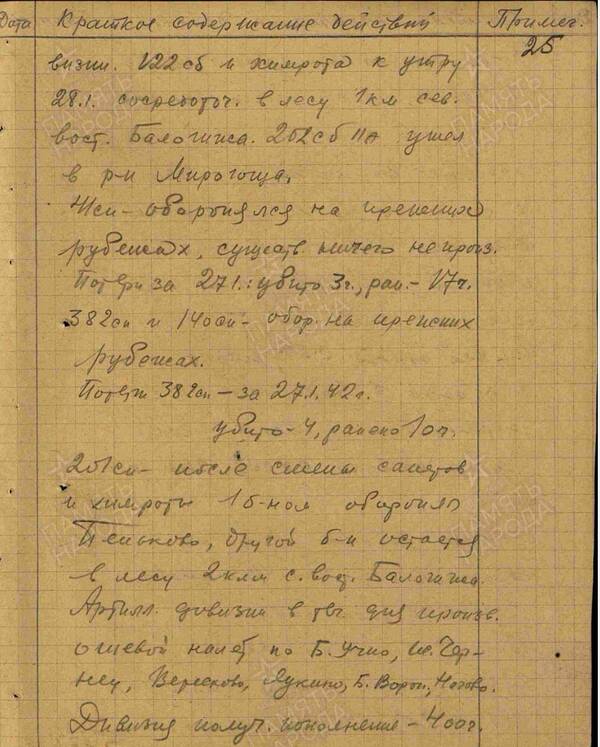 Дата Краткое содержание действий Примеч.
25
визии. 122 сб и химрота к утру
28.1. сосредоточ. в лесу 1 км сев.
вост. Балогижа. 202 сб 11А ушел
в р-н Мирогоща.
оборонялся на прежних
рубежах, существ. ничего не произ.
Потери за 27.1.: убито 3ч., ран.- 17ч.
382сп и 140сп- обор. на прежних
рубежах.
Потери 382сп - за 27.1.42г.
убито-4, ранено 10ч.
201сп- после смены саперов
и химроты 1 б-ном оборонял
Пеньково, другой б-н остается
в лесу 2 км с.вост. Балогижа.
Артилл. дивизии в теч. дня произв.
огневой налет по Б. Учно, Чер-
нец, Вересково, Лукино, Б. Ворон, Ногово.
Дивизия получ. пополнение - 400ч.
ПАМЯТЬ
НАРОДА